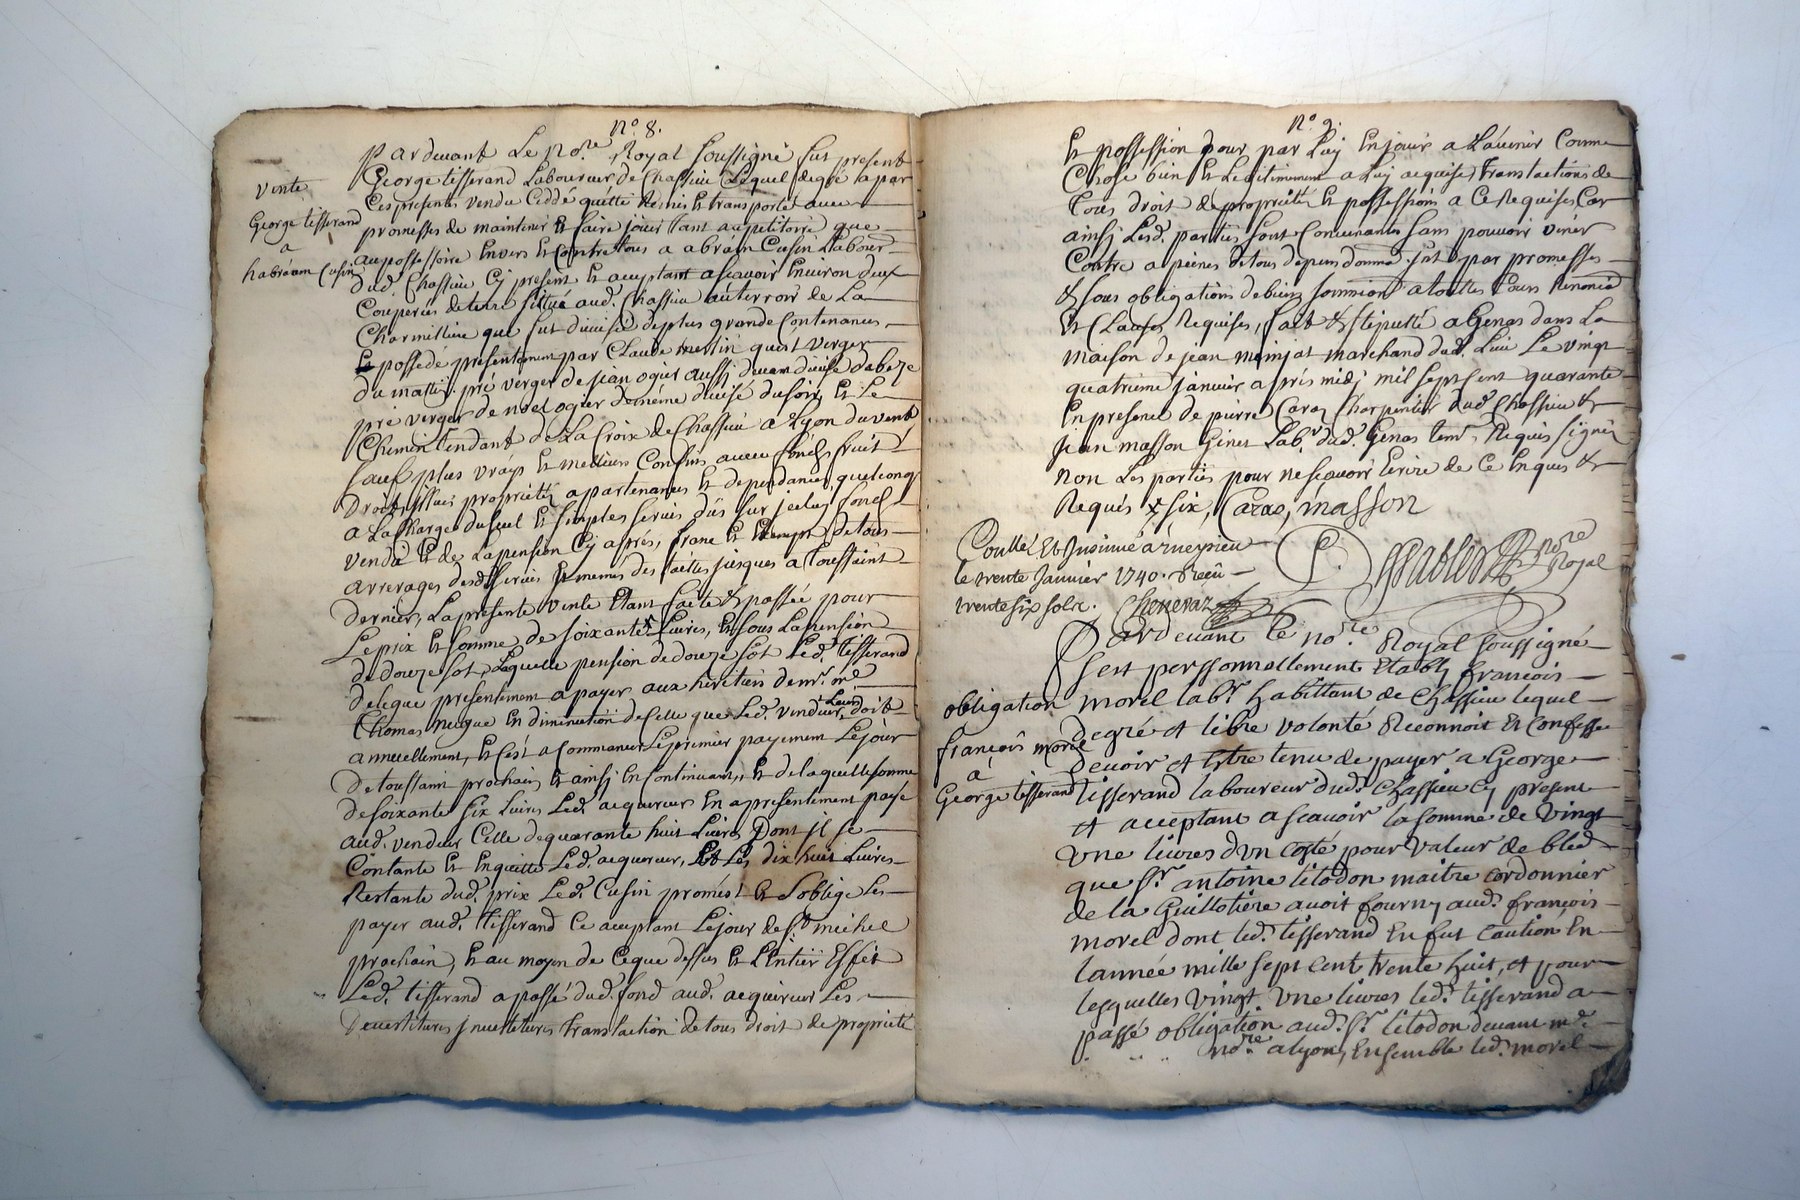 N.º 8.
Pardevant Le No.re Royal soussigné fut present
vente
George tisserand Laboureur de Chassieu Lequel degré a par
Ces presentes vendu Ceddé quitté Remis Et transporté avec
George tisserand
a
habraam Cusin
promesses de maintenir Et faire jouir tant au petitoire que
au possessoire Envers Et Contre tous a abraam Cusin Labour.
dud. Chassieu Cy present Et acceptant ascavoir Environ deux
Couperées de terre scitué aud. Chassieu au terroir de La
Charmilliere que fut divisée de plus grande Contenance,
Et possedé presentement par Claude quest verger
du matin, pré verger de jean ogier aussj divise de bize
pré verger de noel ogier de même divisé du soir, Et Le
Chemin tendant de La Croix de Chassieu a Lyon du vent
sauf plus vrays Et meilleurs Confins avec fonds fruit
Droits, issues proprietés apartenances Et dependances quelconq
a La Charge du seul Et simples servis dûs sur jceluy fonds
vendu Et de La pension Cy après, franc Et Exempt de tous
arrerages desd. servis Et memes des tailles jusques a Toussaint
dernier, La presente vente Etant faite & passée pour
Le prix Et somme de soixante x Livres, Et sous La pension
de douze sol, Laquelle pension de douze sol Led. tisserand
delegue presentement a payer aux heritiers de mr. me
Thomas En diminution de Celle que Led. vendeur Leur doit
annuellement, Et C'est a Commencer Le premier payement Le jour
De toussaint prochain, Et ainsj En Continuant, Et de laquelle somme
de soixante six Livres Led. acquereur En a presentement payé
aud. vendeur Celle de quarante huit Livres Dont jl se
Contante Et En quitte Led. acquereur, Et Les dix huit Livres
Restante dud. prix Led. Cusin promest Et s'oblige Les
payer aud. tisserand Ce acceptant Le jour de st. michel
prochain, Et au moyen de Ceque dessus Et L'Entier Effet
Led. tisserand a passé dud. fond aud. acquereur Les
Devestitures jnvestitures translaction de tous droit de proprieté
N.º 9.
Et possession pour par Luy En jouir a L'avenir Comme
Chose bien Et Legitimement a Luj acquise, translactions de
tous droit de proprieté Et possessions a Ce Requises Car
ainsj Lesd. parties sont Convenantes sans pouvoir venir
Contre a peines de tous depens domma. jnt. & par promesses
& sous obligations de biens soumission a touttes Cours Renoncia.
Et Clauses Requises, fait & stipullé a Genas dans La
maison de jean mainjat marchand dud. Lieu Le vingt
quatrieme janvier après midj mil sept cent quarante
En presence de pierre Caraz Charpentier dud. Chassieu &
jean masson Giner Lab.r dud. Genas tem. Requis signés
non Les parties pour ne sçavoir Ecrire de Ce Enquis &
Requis x six, Caraz, masson
Conllé Et Insinué a meysieu
le trente Janvier 1740. Receu
trente six sols. Cheneraz
No.re Royal
Pardevant le no.re Royal soussigné
s'est perssonnellement Etably francois
obligation
morel lab.r habittant de Chassieu lequel
françois morel
a
George tisserand
degré et libre volonté Reconnoit Et Confesse
devoir et Estre tenu de payer a George
tisserand laboureur dud. Chassieu Cy present
et acceptant ascavoir la somme de vingt
une livres d'un costé pour valeur de bled
que Sr. antoine litodon maitre cordonnier
de la Guillotière avoit fourny aud. françois
morel dont led. tisserand En fut caution En
lannée mille sept cent trente huit, et pour
lesquelles vingt une livres led. tisserand a
passé obligation aud. Sr. litodon devant me.
no.re a lyon, Ensemble led. morel